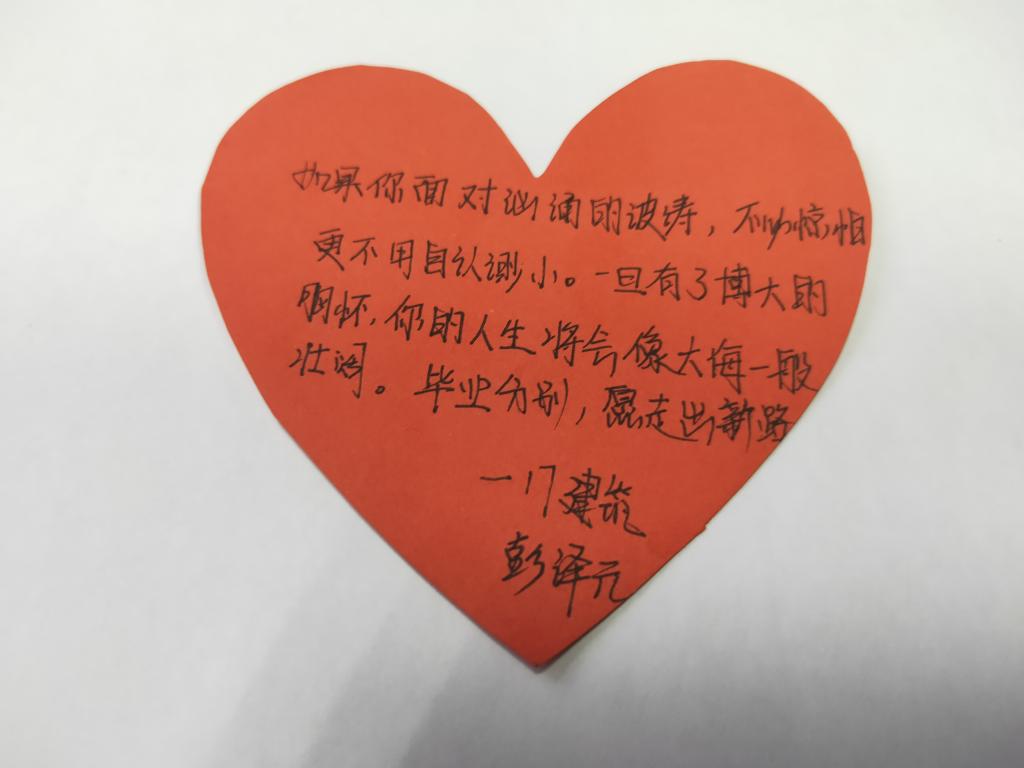 如果你面对汹涌的波涛，不必惊怕
更不用自认渺小。一旦有了博大的
胸怀，你的人生将会像大海一般
壮阔。毕业分别，愿走出新路
一17建筑
彭译元